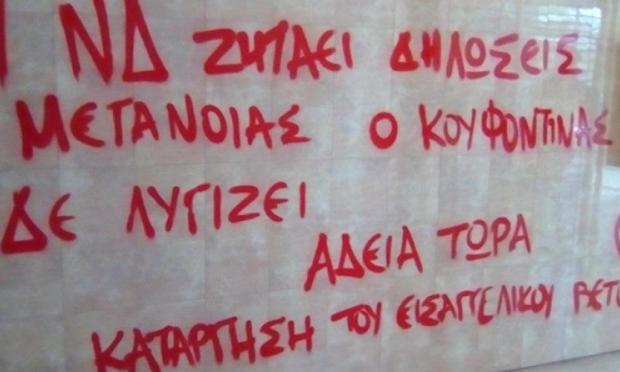 ΝΔ ΖΗΤΑΕΙ ΔΗΛΩΣΕΙΣ
ΜΕΤΑΝΟΙΑΣ Ο ΚΟΥΦΟΝΤΙΝΑΣ
ΔΕ ΛΥΓΙΖΕΙ
ΑΔΕΙΑ ΤΩΡΑ
ΚΑΤΑΡΓΗΣΗ ΤΟΥ ΕΙΣΑΓΓΕΛΙΚΟΥ ΒΕΤΟ